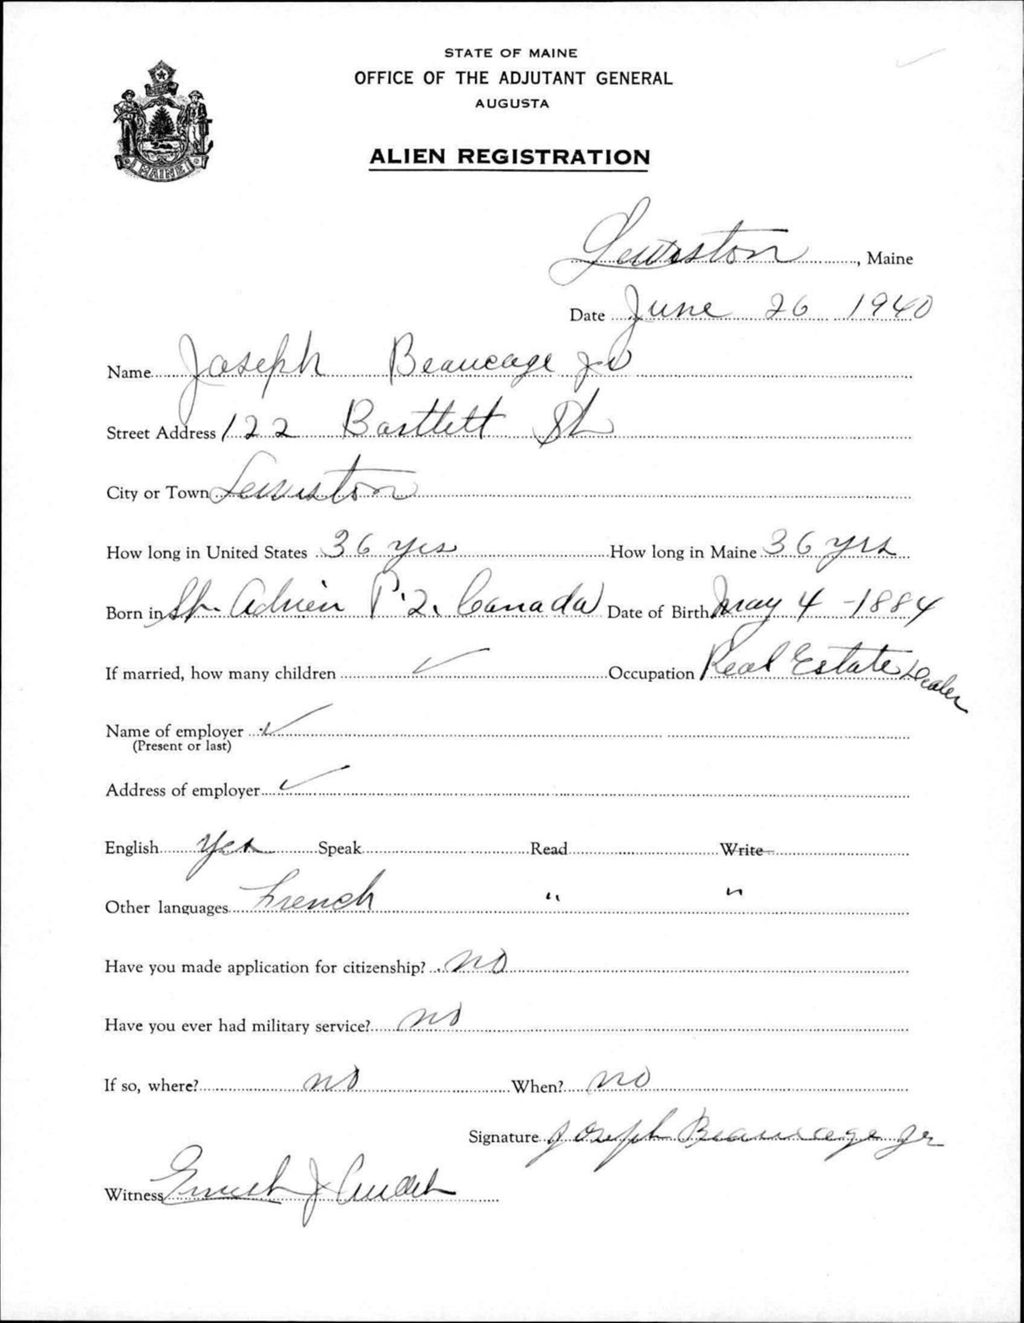 STATE OF MAINE
OFFICE OF THE ADJUTANT GENERAL
AUGUSTA
ALIEN REGISTRATION
MAINE
Lewiston, Maine
Date June 26 1940
Name Joseph Beaucage Jr
Street Address 122 Bartlett St
City or Town Lewiston
How long in United States 36 yrs How long in Maine 36 yrs
Born in St. Adrien P.Q. Canada Date of Birth May 4 - 1884
If married, how many children ✓ Occupation Real Estate Dealer
Name of employer ✓
(Present or last)
Address of employer ✓
English Yes Speak Read Write
Other languages French " "
Have you made application for citizenship? no
Have you ever had military service? no
If so, where? no When? no
Signature Joseph Beaucage Jr
Witness J